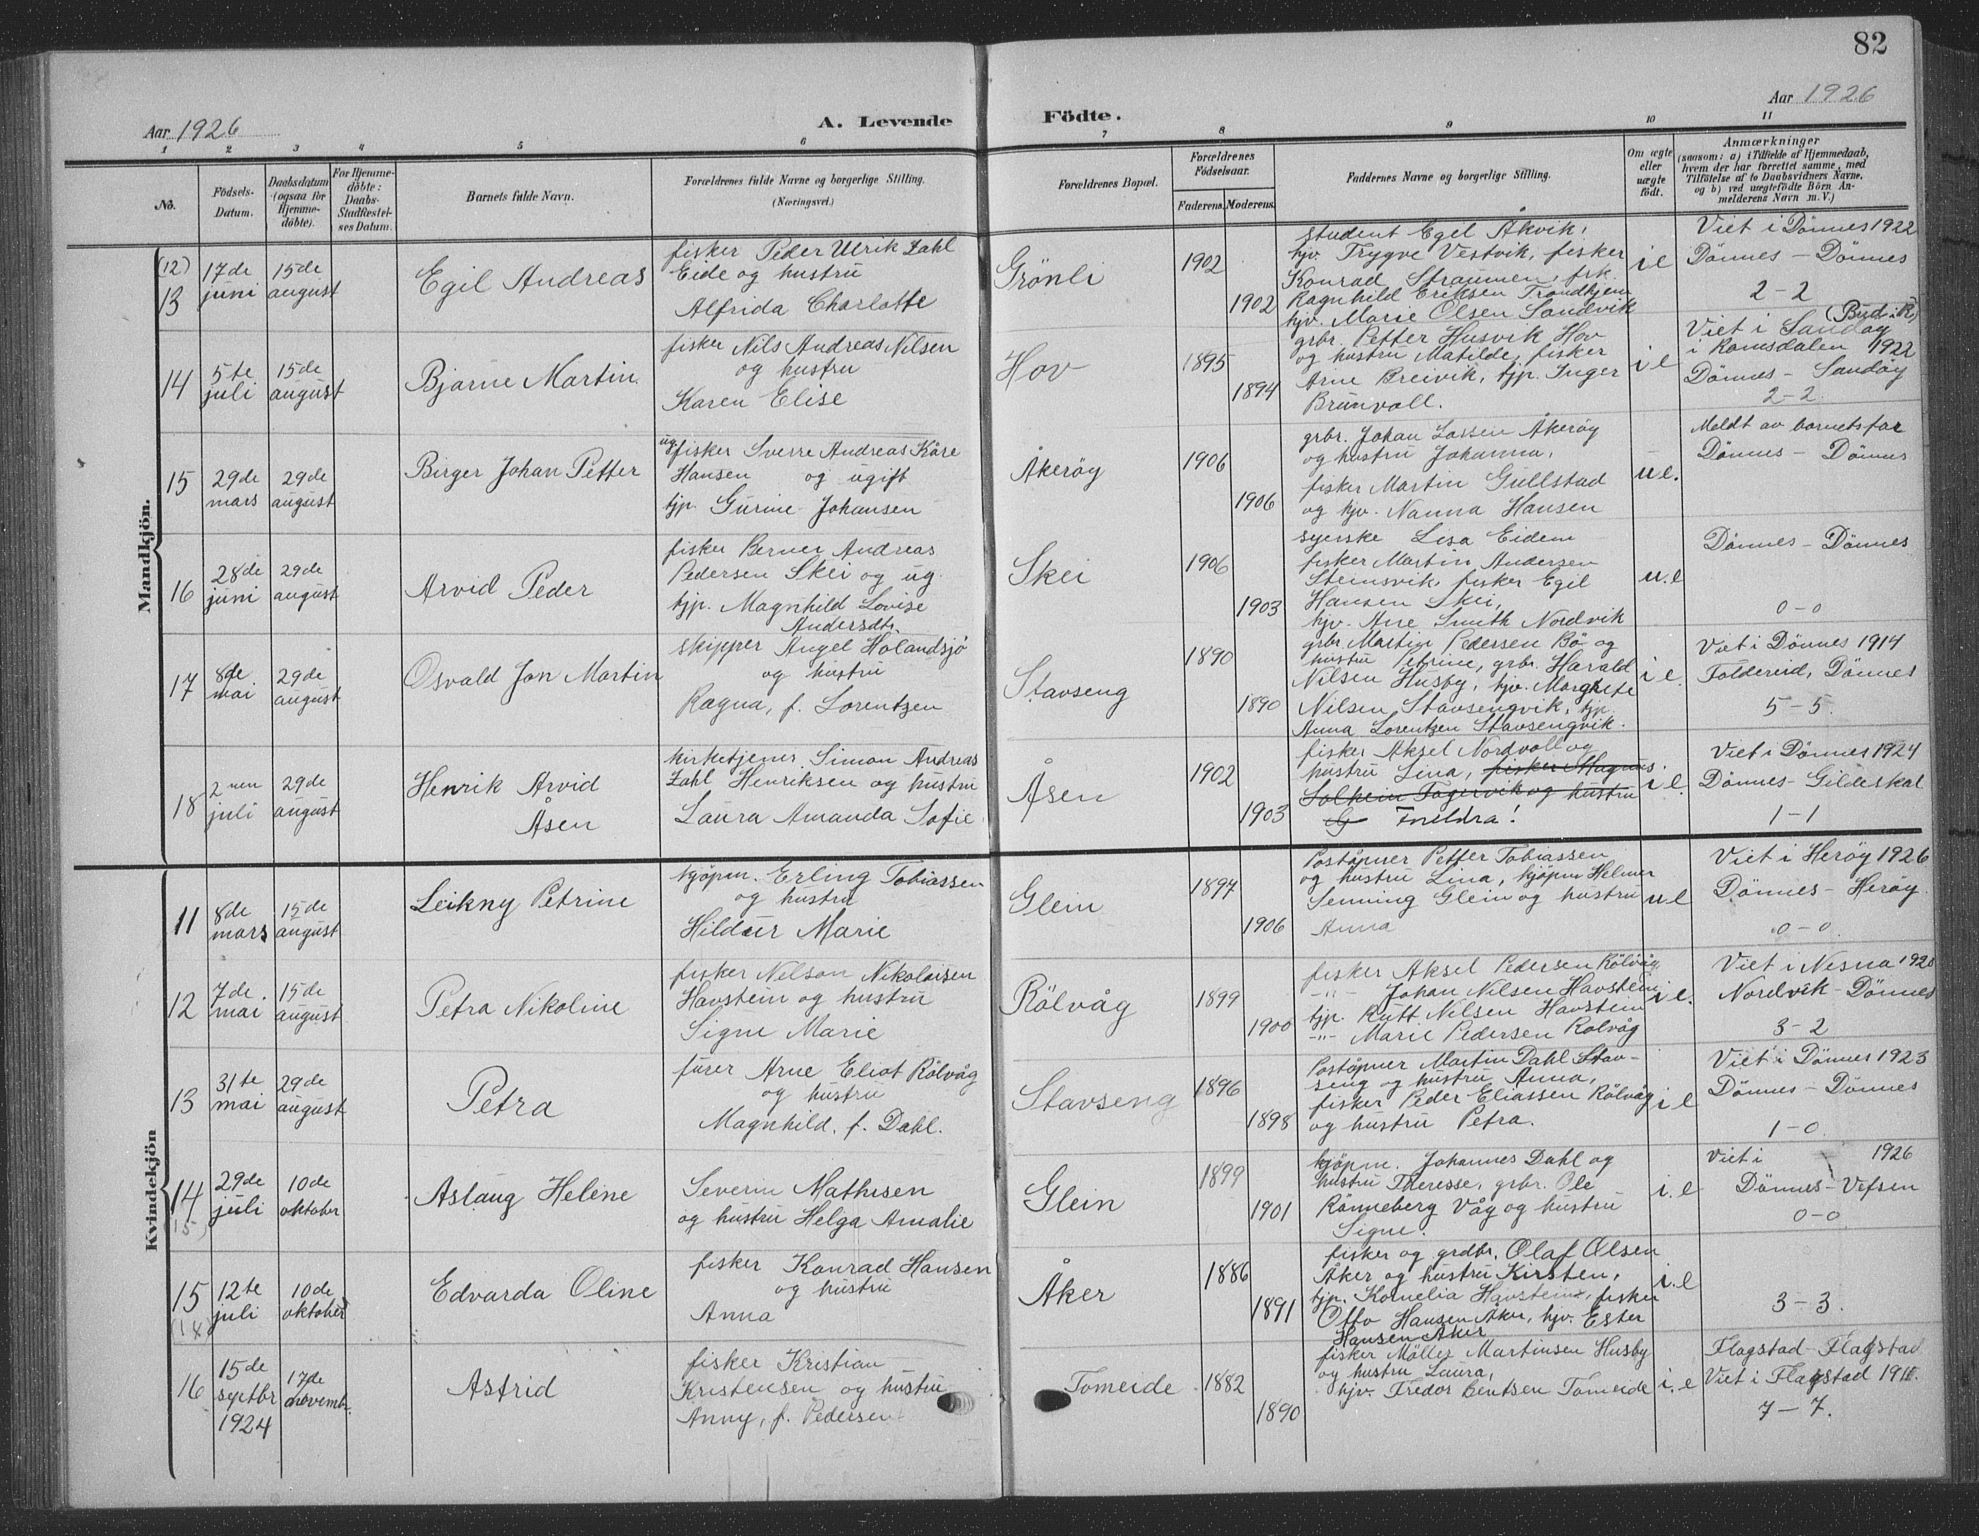 82
Aar 1926
A. Levende Födte.
Aar 1926
1 2 3 4 5 6 7 8 9 10 11
No.
Födsels-Datum.
Daabsdatum (ogsaa for Hjemme-döbte).
For Hjemme-döbte: Daabs-Stadfæstel-ses Datum.
Barnets fulde Navn.
Forældrenes fulde Navne og borgerlige Stilling. (Næringsvei.)
Forældrenes Bopæl.
Forældrenes Födselsaar.
Faderens. Moderens.
Faddernes Navne og borgerlige Stilling.
Om ægte eller uægte födt.
Anmærkninger
(saasom: a) i Tilfælde af Hjemmedaab, hvem der har forrettet samme, med Tilföielse af to Daabsvidners Navne, og b) ved uægtefödte Börn An-melderens Navn m. V.)
Mandkjön.
(12)
13
17de juni
15de august
Egil Andreas
fisker Peder Ulrik Zahl
Eide og hustru
Alfrida Charlotte
Grönli
1902
1902
student Egel Åkvik,
hjv. Trygve Vestvik, fisker
Konrad Straumen, frk.
Ragnhild Eriksen Trondhjem
hjv. Marie Olsen Sandvik
i e
Viet i Dönnes 1922
Dönnes - Dönnes
2 - 2
14
5te juli
15de august
Bjarne Martin
fisker Nils Andreas Nilsen
og hustru
Karen Elise
Hov
1895
1894
grbr. Petter Husvik Hov
og hustru Matilde, fisker
Arne Breivik, tjp. Inger
Brunvoll.
i e
(Bud i R)
Viet i Sandøy
i Romsdalen 1922
Dönnes - Sandöy
2 - 2.
15
29de mars
29de august
Birger Johan Petter
ug. fisker Sverre Andreas Kåre
Hansen og ugift
tjp. Gurine Johansen
Åkeröy
1906
1906
grbr. Johan Lassen Åkeröy
og hustru Johanna,
fisker Martin Gullstad
og hjv. Nanna Hansen
u e.
Meldt av barnets far
Dönnes - Dönnes
16
28de juni
29de august
Arvid Peder
fisker Berner Andreas
Pedersen Skei og ug.
tjp. Magnhild Lovise
Andersdtr.
Skei
1906
1903
syerske Lisa Eidem
fisker Martin Andersen
Steinsvik, fisker Egil
Hansen Skei,
hjv. Ane Smith Nordvik
u.e
Dönnes - Dönnes
0 - 0
17
8de mai
29de august
Osvald Jon Martin
skipper Angel Holandsjö
og hustru
Ragna, f. Lorentzen
Stavseng
1890
1890
grbr Martin Pedersen Bö og
hustru Petrine, grbr. Harald
Nilsen Husby, hjv. Margrete
Nilsen Stavsengvik, tjp.
Anna Lorentzen Stavsengvik.
i e.
Viet i Dönnes 1914
Foldereid, Dönnes
5 - 5.
18
2nen juli
29de august
Henrik Arvid
Åsen
kirketjener Simon Andreas
Zahl Henriksen og hustru
Laura Amanda Sofie
Åsen
1902
1903
fisker Aksel Nordvoll og
hustru Lina, fisker Magnus
Solheim Fagervik og hustru
i e.
Viet i Dönnes 1924
Dönnes - Gildeskal
1 - 1
Kvindekjön
11
8de mars
15de august
Leikny Petrine
kjöpm. Erling Tobiassen
og hustru
Hildur Marie
Glein
1897
1906
Postöpner Petter Tobiassen
og hustru Lina, kjöpm Helmer
Senning Glein og hustru
Anna
u e
Viet i Heröy 1926
Dönnes - Heröy.
0 - 0.
12
7de mai
15de august
Petra Nikoline
fisker Nelson Nikolaisen
Havstein og hustru
Signe Marie
Rölvåg
1899
1900
fisker Aksel Pedersen Rölvåg
-"- Johan Nilsen Havstein
tjp. Rutt Nilsen Havstein
-"- Marie Pedersen Rölvåg
i e.
Viet i Nesna
Nordvik - Dönnes
3 - 2
13
31te mai
29de august
Petra
furer Arne Eliot Rölvåg
og hustru
Magnhild. f. Dahl.
Stavseng
1896
1898
Postöpner Martin Dahl Stav-
seng og hustru Anna,
fisker Peder Eliassen Rölvåg
og hustru Petra.
i e
Viet i Dönnes 1923
Dönnes - Dönnes
1 - 0.
14
(15)
29de juli
10de oktober
Aslaug Helene
Severin Mathisen
og hustru Helga Amalie
Glein
1899
1901
kjöpm. Johannes Dahl og
hustru Theresse, grbr. Ole
Rönneberg Våg og hustru
Signe.
i. e
Viet i 1926
Dönnes - Vefsen
0 - 0
15
(14)
12te juli
10de oktober
Edvarda Oline
fisker Konrad Hansen
og hustru
Anna
Åker
1886
1891
fisker og grdbr. Olaf Olsen
Åker og hustru Kirsten,
tjp. Kornelia Havstein, fisker
Otto Hansen Åker, hjv. Ester
Hansen Åker
i. e
3 - 3.
16
15de septbr 1924
17de novemb.
Astrid
fisker Kristian
Kristensen og hustru
Anny, f. Pedersen
Tomeide
1882
1890
fisker Möller Martinsen Husby
og hustru Laura,
hjv. Fredor Bentsen Tomeide
i. e
Flagstad - Flagstad
Viet i Flagstad
7 - 7.